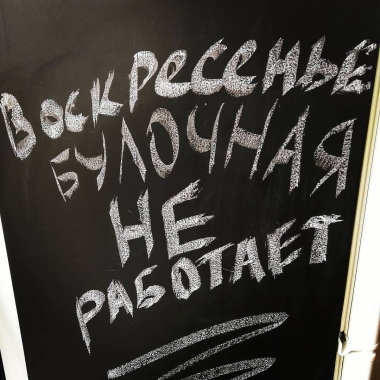 Воскресенье
БУЛОЧНАЯ
НЕ
РАБОТАЕТ